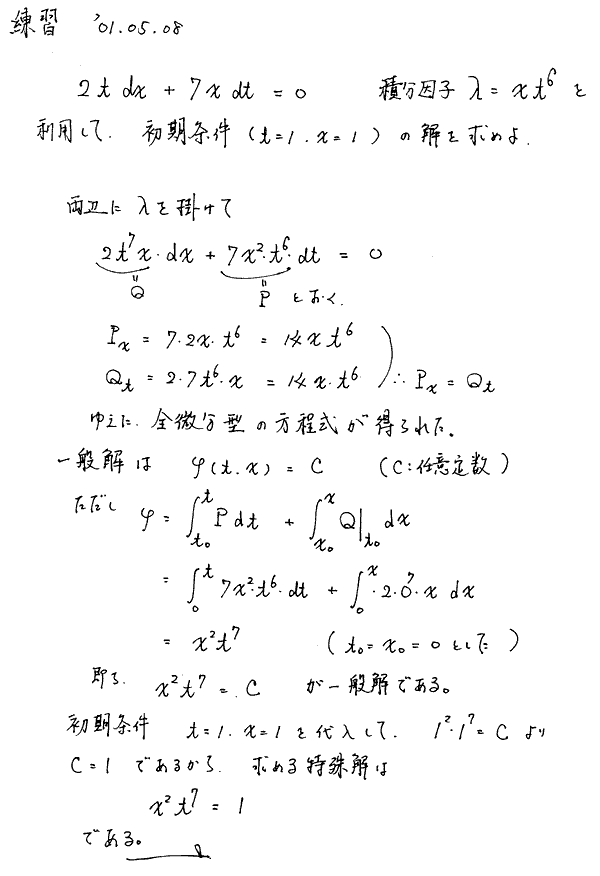 練習 '01.05.08
2t dx + 7x dt = 0 積分因子 λ = xt⁶ を
利用して. 初期条件 (t=1. x=1) の解を求めよ.
両辺に λを掛けて
2t⁷x·dx + 7x²·t⁶·dt = 0
"Q "P とおく.
Pₓ = 7·2x·t⁶ = 14xt⁶
Qₜ = 2·7t⁶·x = 14x·t⁶ ∴ Pₓ = Qₜ
ゆえに. 全微分型の方程式が得られた。
一般解は φ(t.x) = C (C:任意定数)
ただし φ = ∫ₜ₀ᵗ P dt + ∫ₓ₀ˣ Q|ₜ₀ dx
= ∫₀ᵗ 7x²·t⁶·dt + ∫₀ˣ·2·0⁷·x dx
= x²t⁷ (t₀=x₀=0とした)
即ち. x²t⁷ = C が一般解である。
初期条件 t=1. x=1 を代入して. 1²·1⁷=C より
C=1 であるから. 求める特殊解は
x²t⁷ = 1
である。